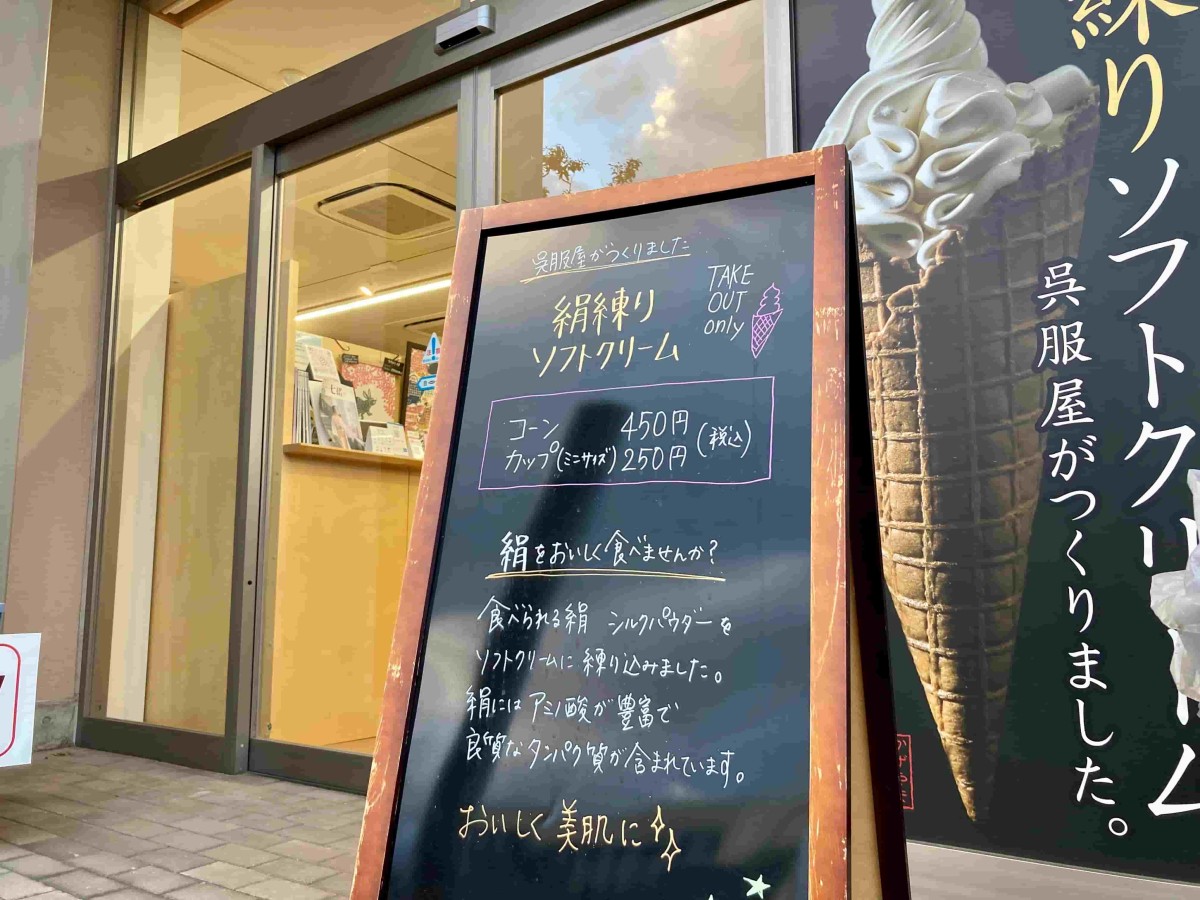 呉服屋がつくりました
絹練り
ソフトクリーム
TAKE
OUT
only
コーン 450円
カップ(ミニサイズ) 250円 (税込)
絹をおいしく食べませんか?
食べられる絹 シルクパウダーを
ソフトクリームに練り込みました。
絹にはアミノ酸が豊富で
良質なタンパク質が含まれています。
おいしく美肌に
練りソフトクリーム
呉服屋がつくりました。